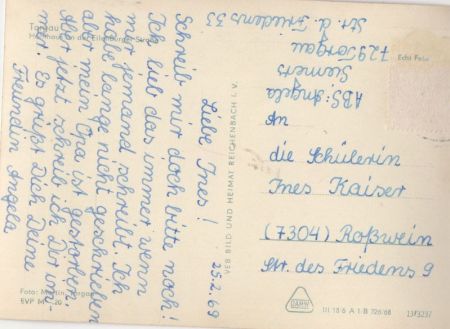 Torgau
Hochhaus an der Eilenburger Straße
25.2.69
Liebe Ines!
Schreib mir doch bitte noch!
Ich lieb das immer wenn
mir jemand schreibt. Ich
habe lange nicht geschrieben
aber mein Opa ist gestorben.
Aber jetzt schreib ich Dir im-
mer. Es grüßt Dich Deine
Freundin Angela
Foto: Torgau
EVP M -,20
VEB BILD UND HEIMAT REICHENBACH I. V.
Echt Foto
ABS: Angela
Siemers
729 Torgau
Str. d. Friedens 33
An
die Schülerin
Ines Kaiser
(7304) Roßwein
Str. des Friedens 9
III 18 6 A 1 B 726/68
13/3237